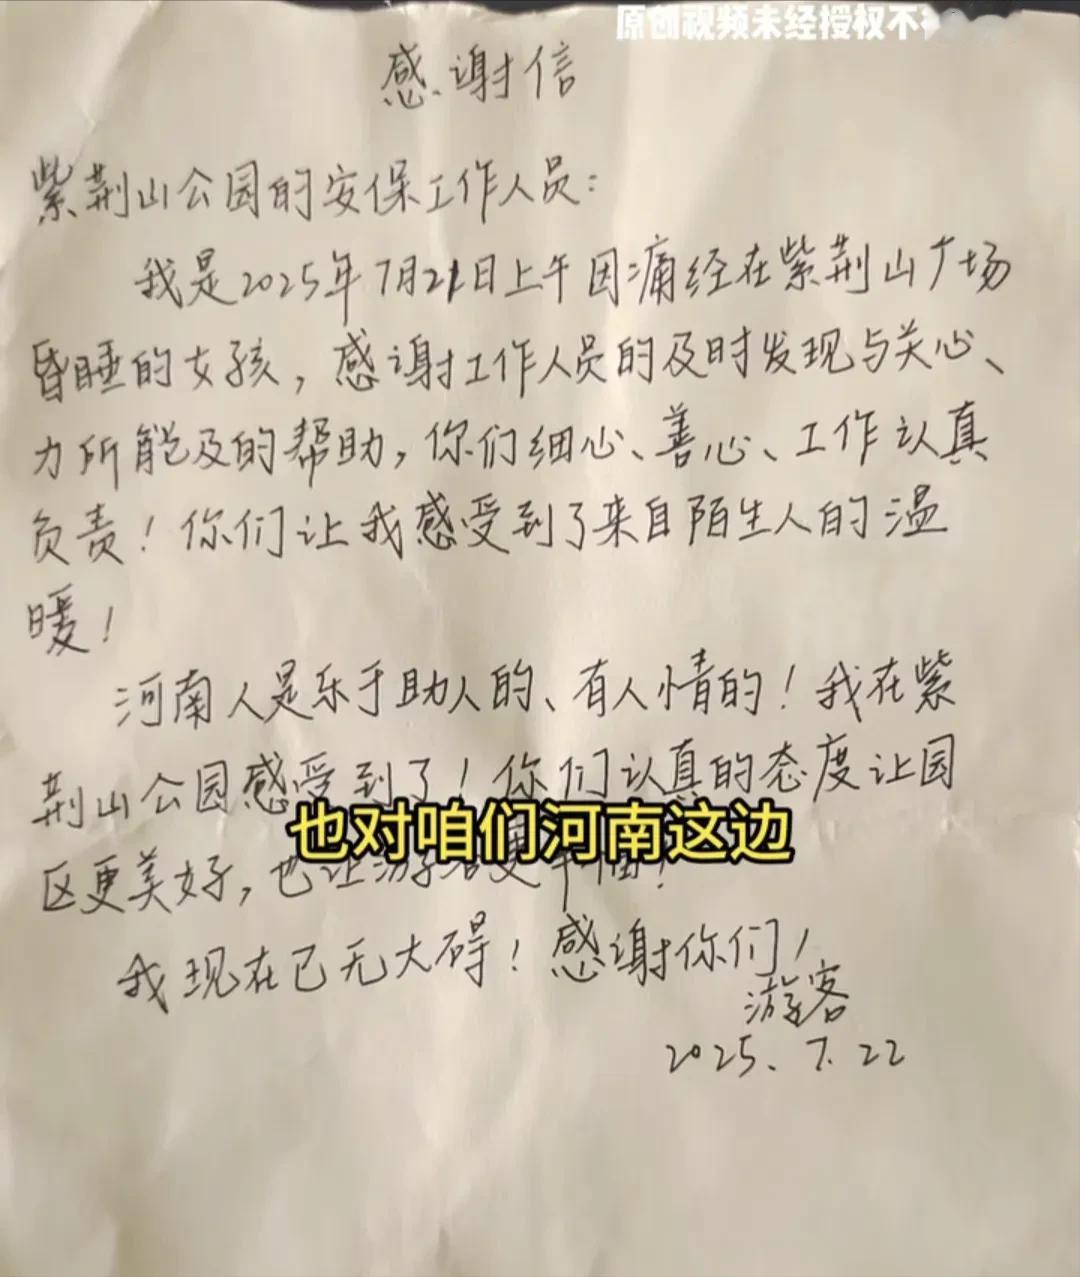 原创视频未经授权不
感谢信
紫荆山公园的安保工作人员：
我是2025年7月21日上午因痛经在紫荆山广场
昏睡的女孩，感谢工作人员的及时发现与关心、
力所能及的帮助，你们细心、善心、工作认真
负责！你们让我感受到了来自陌生人的温
暖！
河南人是乐于助人的、有人情的！我在紫
荆山公园感受到了！你们认真的态度让园
也对咱们河南这边
区更美好，也让
我现在已无大碍！感谢你们！
游客
2025.7.22